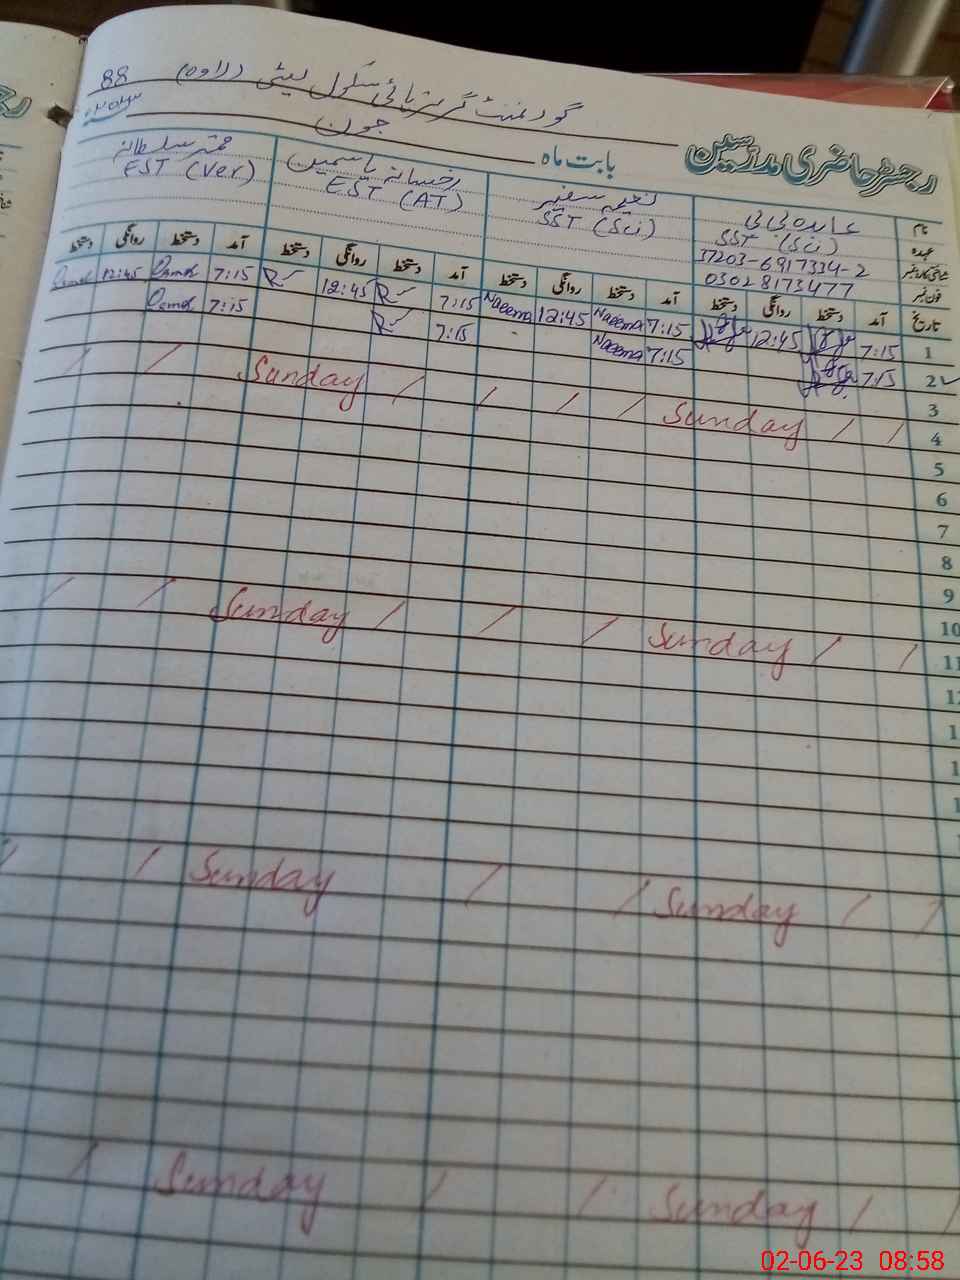 88
گورنمنٹ گرلز ہائی سکول لیٹی (لاوہ)
رجسٹر حاضری مدرسین
بابت ماہ جون
نام عابدہ بی بی نعیمہ سفیر رخسانہ یاسمین سلطانہ
عہدہ SST (Sci) SST (Sci) EST (AT) EST (Ver)
شناختی کارڈ نمبر 37203-6917334-2
فون نمبر 03028173477
تاریخ آمد دستخط روانگی دستخط آمد دستخط روانگی دستخط آمد دستخط روانگی دستخط آمد دستخط روانگی دستخط
1 7:15 12:45 7:15 Naeema 12:45 Naeema 7:15 12:45 7:15 12:45
2 7:15 7:15 Naeema 7:15 7:15
3
4 / / Sunday / / / / Sunday / /
5
6
7
8
9
10
11 / / Sunday / / / Sunday / /
/ / Sunday / / Sunday / /
/ / Sunday / / Sunday /
02-06-23 08:58